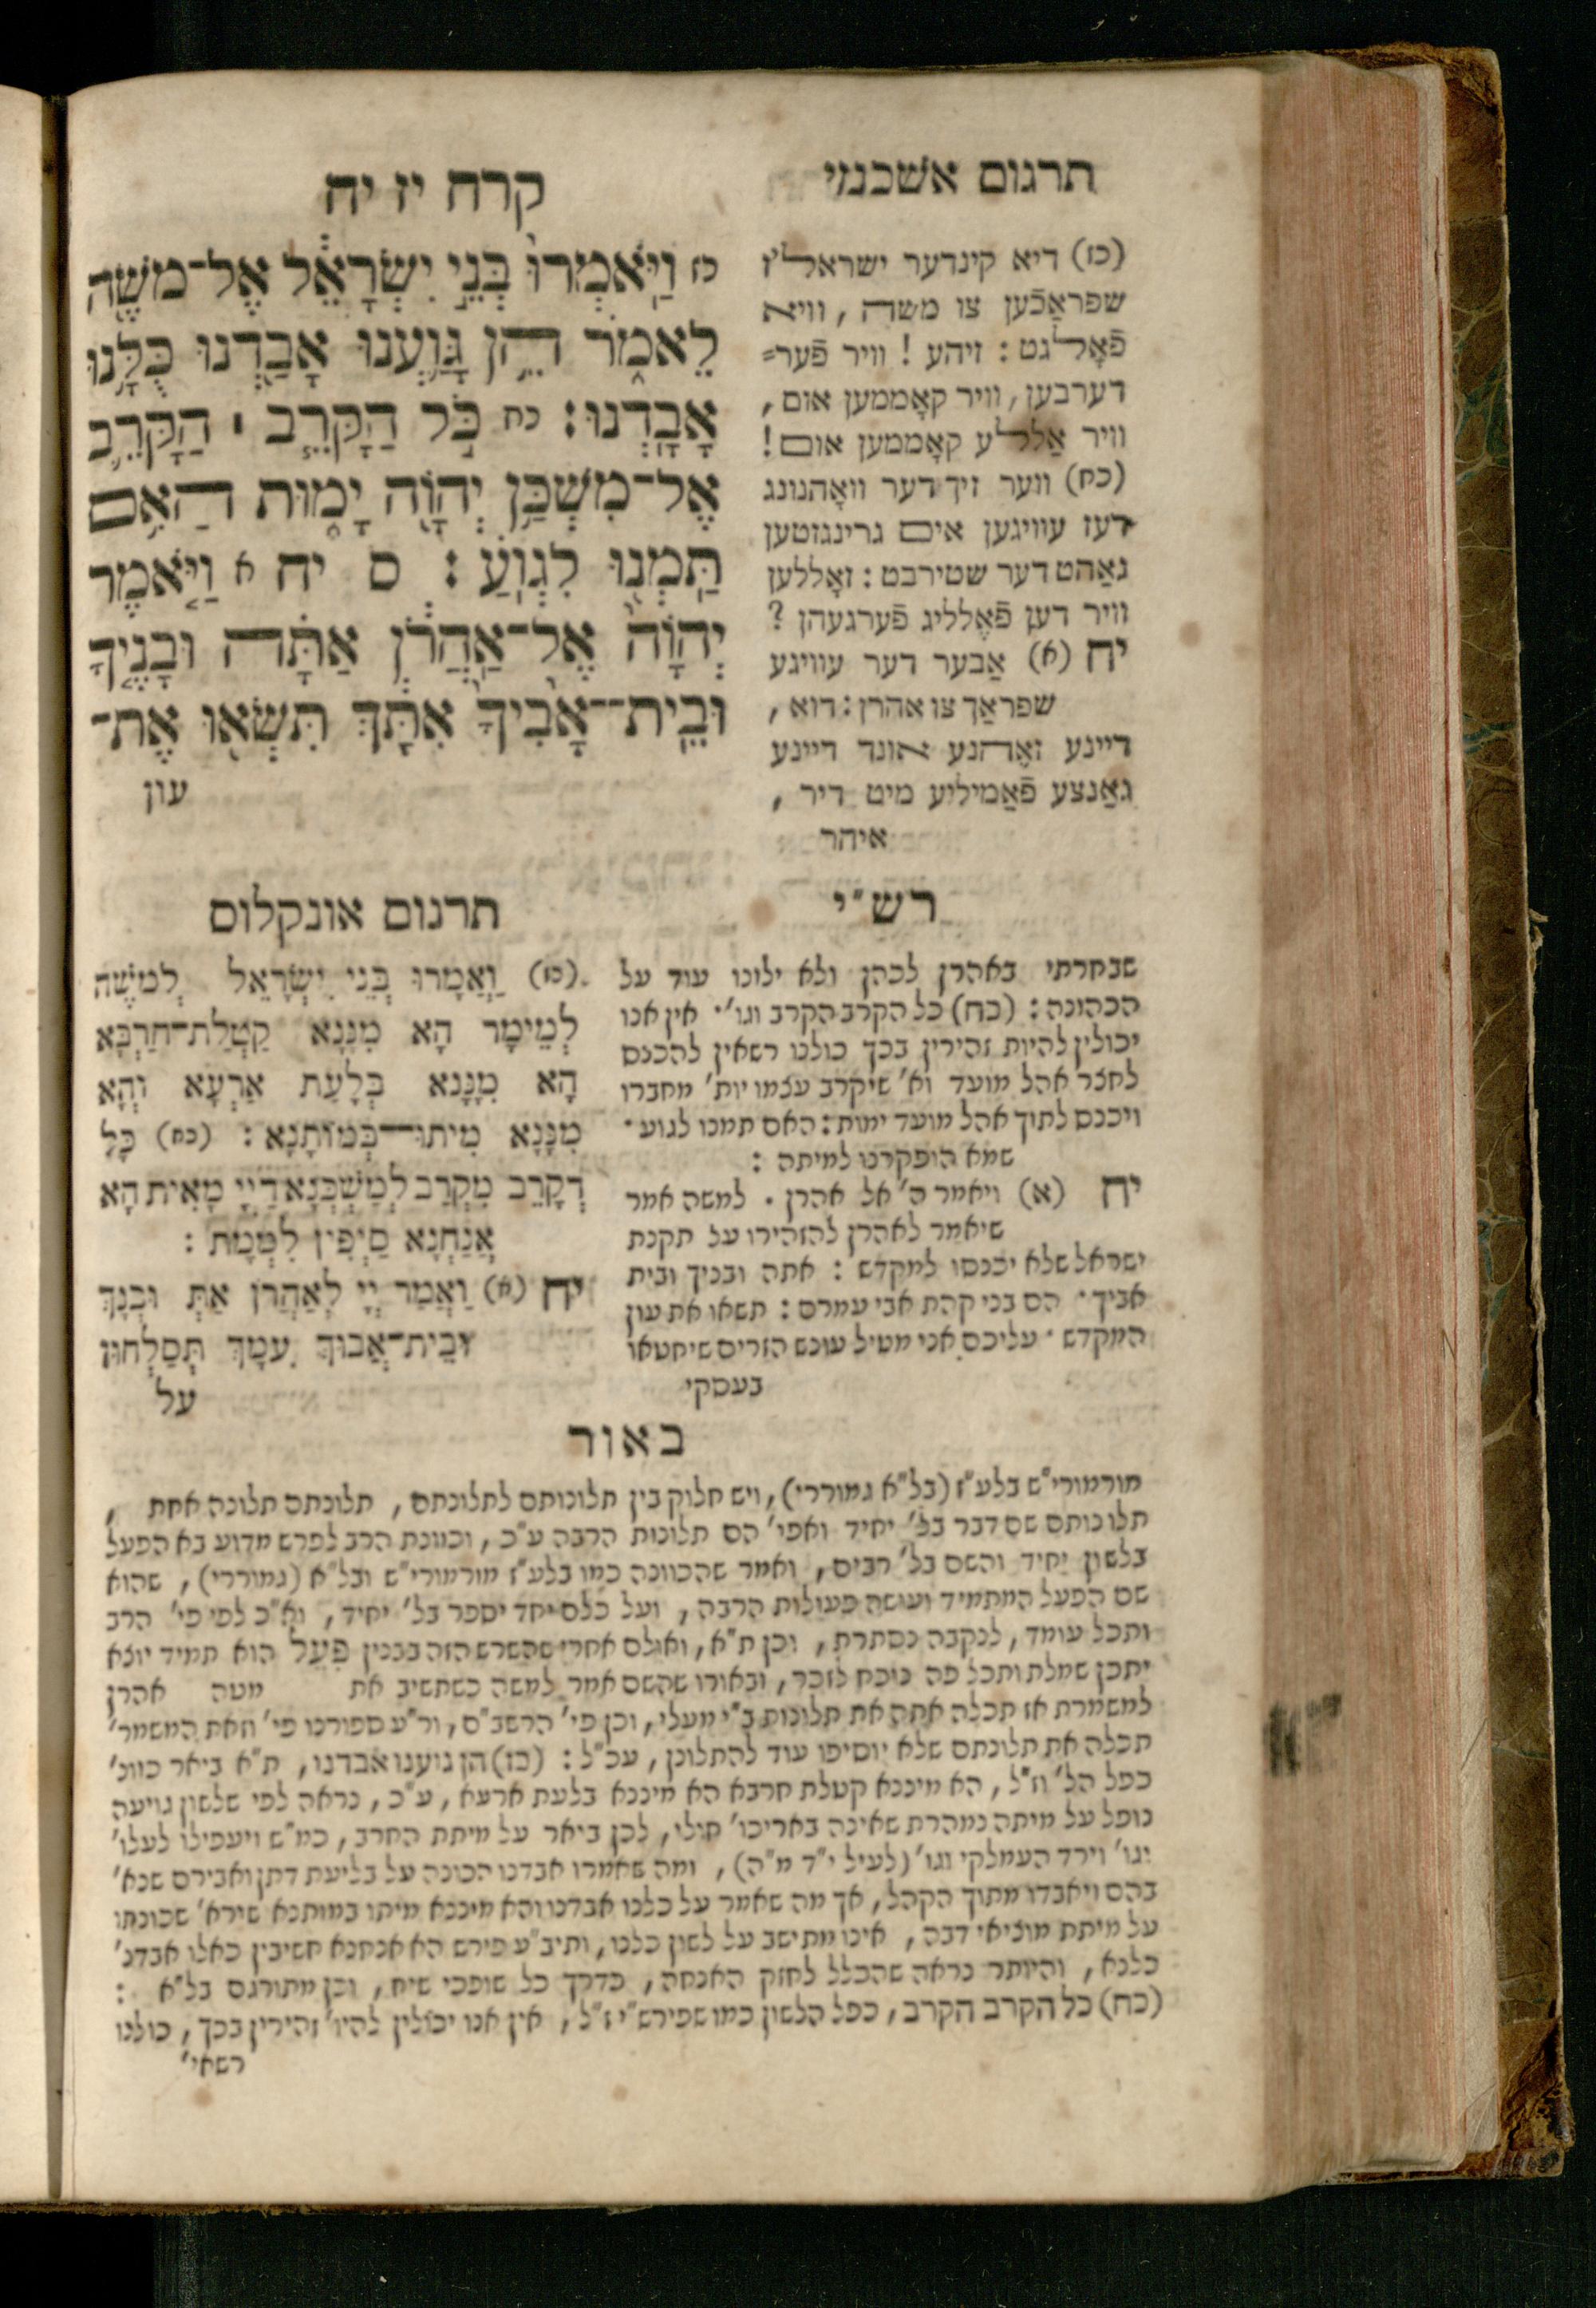 תרגום אשכנזי
(כז) דיא קינדער ישראל'ז
שפראַכֿען צו משה, וויא
פֿאָלגט: זיהע! וויר פֿער=
דערבען, וויר קאָממען אום,
וויר אַללע קאָממען אום!
(כח) ווער זיך דער וואָהנונג
דעז עוויגען אים גרינגזטען
נאַהט דער שטירבט: זאָללען
וויר דען פֿאֶלליג פֿערגעהן?
יח (א) אַבער דער עוויגע
שפראַך צו אהרן: דוא,
דיינע זאֶהנע אונד דיינע
גאַנצע פֿאַמיליע מיט דיר,
איהר
קרח יז יח
כז וַיֹּֽאמְרוּ֙ בְּנֵ֣י יִשְׂרָאֵ֔ל אֶל־מֹשֶׁ֖ה
לֵאמֹ֑ר הֵ֥ן גָּוַ֛עְנוּ אָבַ֖דְנוּ כֻּלָּ֥נוּ
אָבָֽדְנוּ׃ כח כֹּ֣ל הַקָּרֵ֧ב ׀ הַקָּרֵ֛ב
אֶל־מִשְׁכַּ֥ן יְהוָ֖ה יָמ֑וּת הַאִ֥ם
תַּ֖מְנוּ לִגְוֺֽעַ׃ ס יח א וַיֹּ֤אמֶר
יְהוָה֙ אֶֽל־אַהֲרֹ֔ן אַתָּ֗ה וּבָנֶ֤יךָ
וּבֵית־־אָבִ֙יךָ֙ אִתָּ֔ךְ תִּשְׂא֖וּ אֶת־
עון
רש"י
שבחרתי באהרן לכהן ולא ילונו עוד על
הכהונה: (כח) כל הקרב הקרב וגו'· אין אנו
יכולין להיות זהירין בכך כולנו רשאין להכנס
לחצר אהל מועד וא' שיקרב עצמו יות' מחברו
ויכנס לתוך אהל מועד ימות: האם תמנו לגוע·
שמא הופקרנו למיתה:
יח (א) ויאמר ה' אל אהרן· למשה אמר
שיאמר לאהרן להזהירו על תקנת
ישראל שלא יכנסו למקדש: אתה ובניך ובית
אביך· הם בני קהת אבי עמרם: תשאו את עון
המקדש· עליכם אני מטיל עונש הזרים שיחטאו
בעסקי
תרגום אונקלוס
(כז) וַאֲמָרוּ בְּנֵי יִשְׂרָאֵל לְמֹשֶׁה
לְמֵימָר הָא מִנָּנָא קַטְלַת־חַרְבָּא
הָא מִנָּנָא בְּלָעַת אַרְעָא וְהָא
מִנָּנָא מִיתוּ־בְּמוֹתָנָא: (כח) כָּל
דְקָרֵב מִקְרַב לְמַשְׁכְּנָא דַיְיָ מָאִית הָא
אֲנַחְנָא סַיְפִין לִמְמָת:
יח (א) וַאֲמַר יְיָ לְאַהֲרֹן אַתְּ וּבְנָךְ
וּבֵית־אֲבוּךְ עִמָּךְ תְּסַלְחוּן
על
באור
מורמורי"ש בלע"ז (בל"א גמוררי), ויש חלוק בין תלונותם לתלונתם, תלונתם תלונה אחת,
תלונותם שם דבר בל' יחיד ואפי' הם תלונות הרבה ע"כ, וכוונת הרב לפרש מדוע בא הפעל
בלשון יחיד והשם בל' רבים, ואמר שהכוונה כמו בלע"ז מורמורי"ש ובל"א (גמוררי), שהוא
שם הפעל המתמיד ועושה פעולות הרבה, ועל כלם יחד יספר בל' יחיד, וא"כ לפי פי' הרב
ותכל עומד, לנקבה נסתרת, וכן ת"א, ואולם אחרי שהשרש הזה בבנין פִּעֵל הוא תמיד יוצא
יתכן שמלת ותכל פה נוכח לזכר, ובאורו שהשם אמר למשה כשתשיב את מטה אהרן
למשמרת אז תכלה אתה את תלונות ב"י מעלי, וכן פי' הרשב"ם, ור"ע ספורנו פי' וזאת המשמר'
תכלה את תלונתם שלא יוסיפו עוד להתלונן, עכ"ל: (כז) הן גוענו אבדנו, ת"א ביאר כוונ'
כפל הל' וז"ל, הא מיננא קטלת חרבא הא מיננא בלעת ארעא, ע"כ, נראה לפי שלשון גויעה
נופל על מיתה נמהרת שאינה באריכו' חולי, לכן ביאר על מיתת החרב, כמ"ש ויעפילו לעלו'
וגו' וירד העמלקי וגו' (לעיל י"ד מ"ה), ומה שאמרו אבדנו הכונה על בליעת דתן ואבירם שנא'
בהם ויאבדו מתוך הקהל, אך מה שאמר על כלנו אבדנו והא מיננא מיתו במותנא שירא' שכונתו
על מיתת מוציאי דבה, אינו מתישב על לשון כלנו, ותיב"ע פירש הא אנחנא חשיבין כאלו אבדנ'
כלנא, והיותר נראה שהכלל לחזק האנחה, כדרך כל שופכי שיח, וכן מתורגם בל"א:
(כח) כל הקרב הקרב, כפל הלשון כמו שפירש"י ז"ל, אין אנו יכולין להיו' זהירין בכך, כולנו
רשאי'